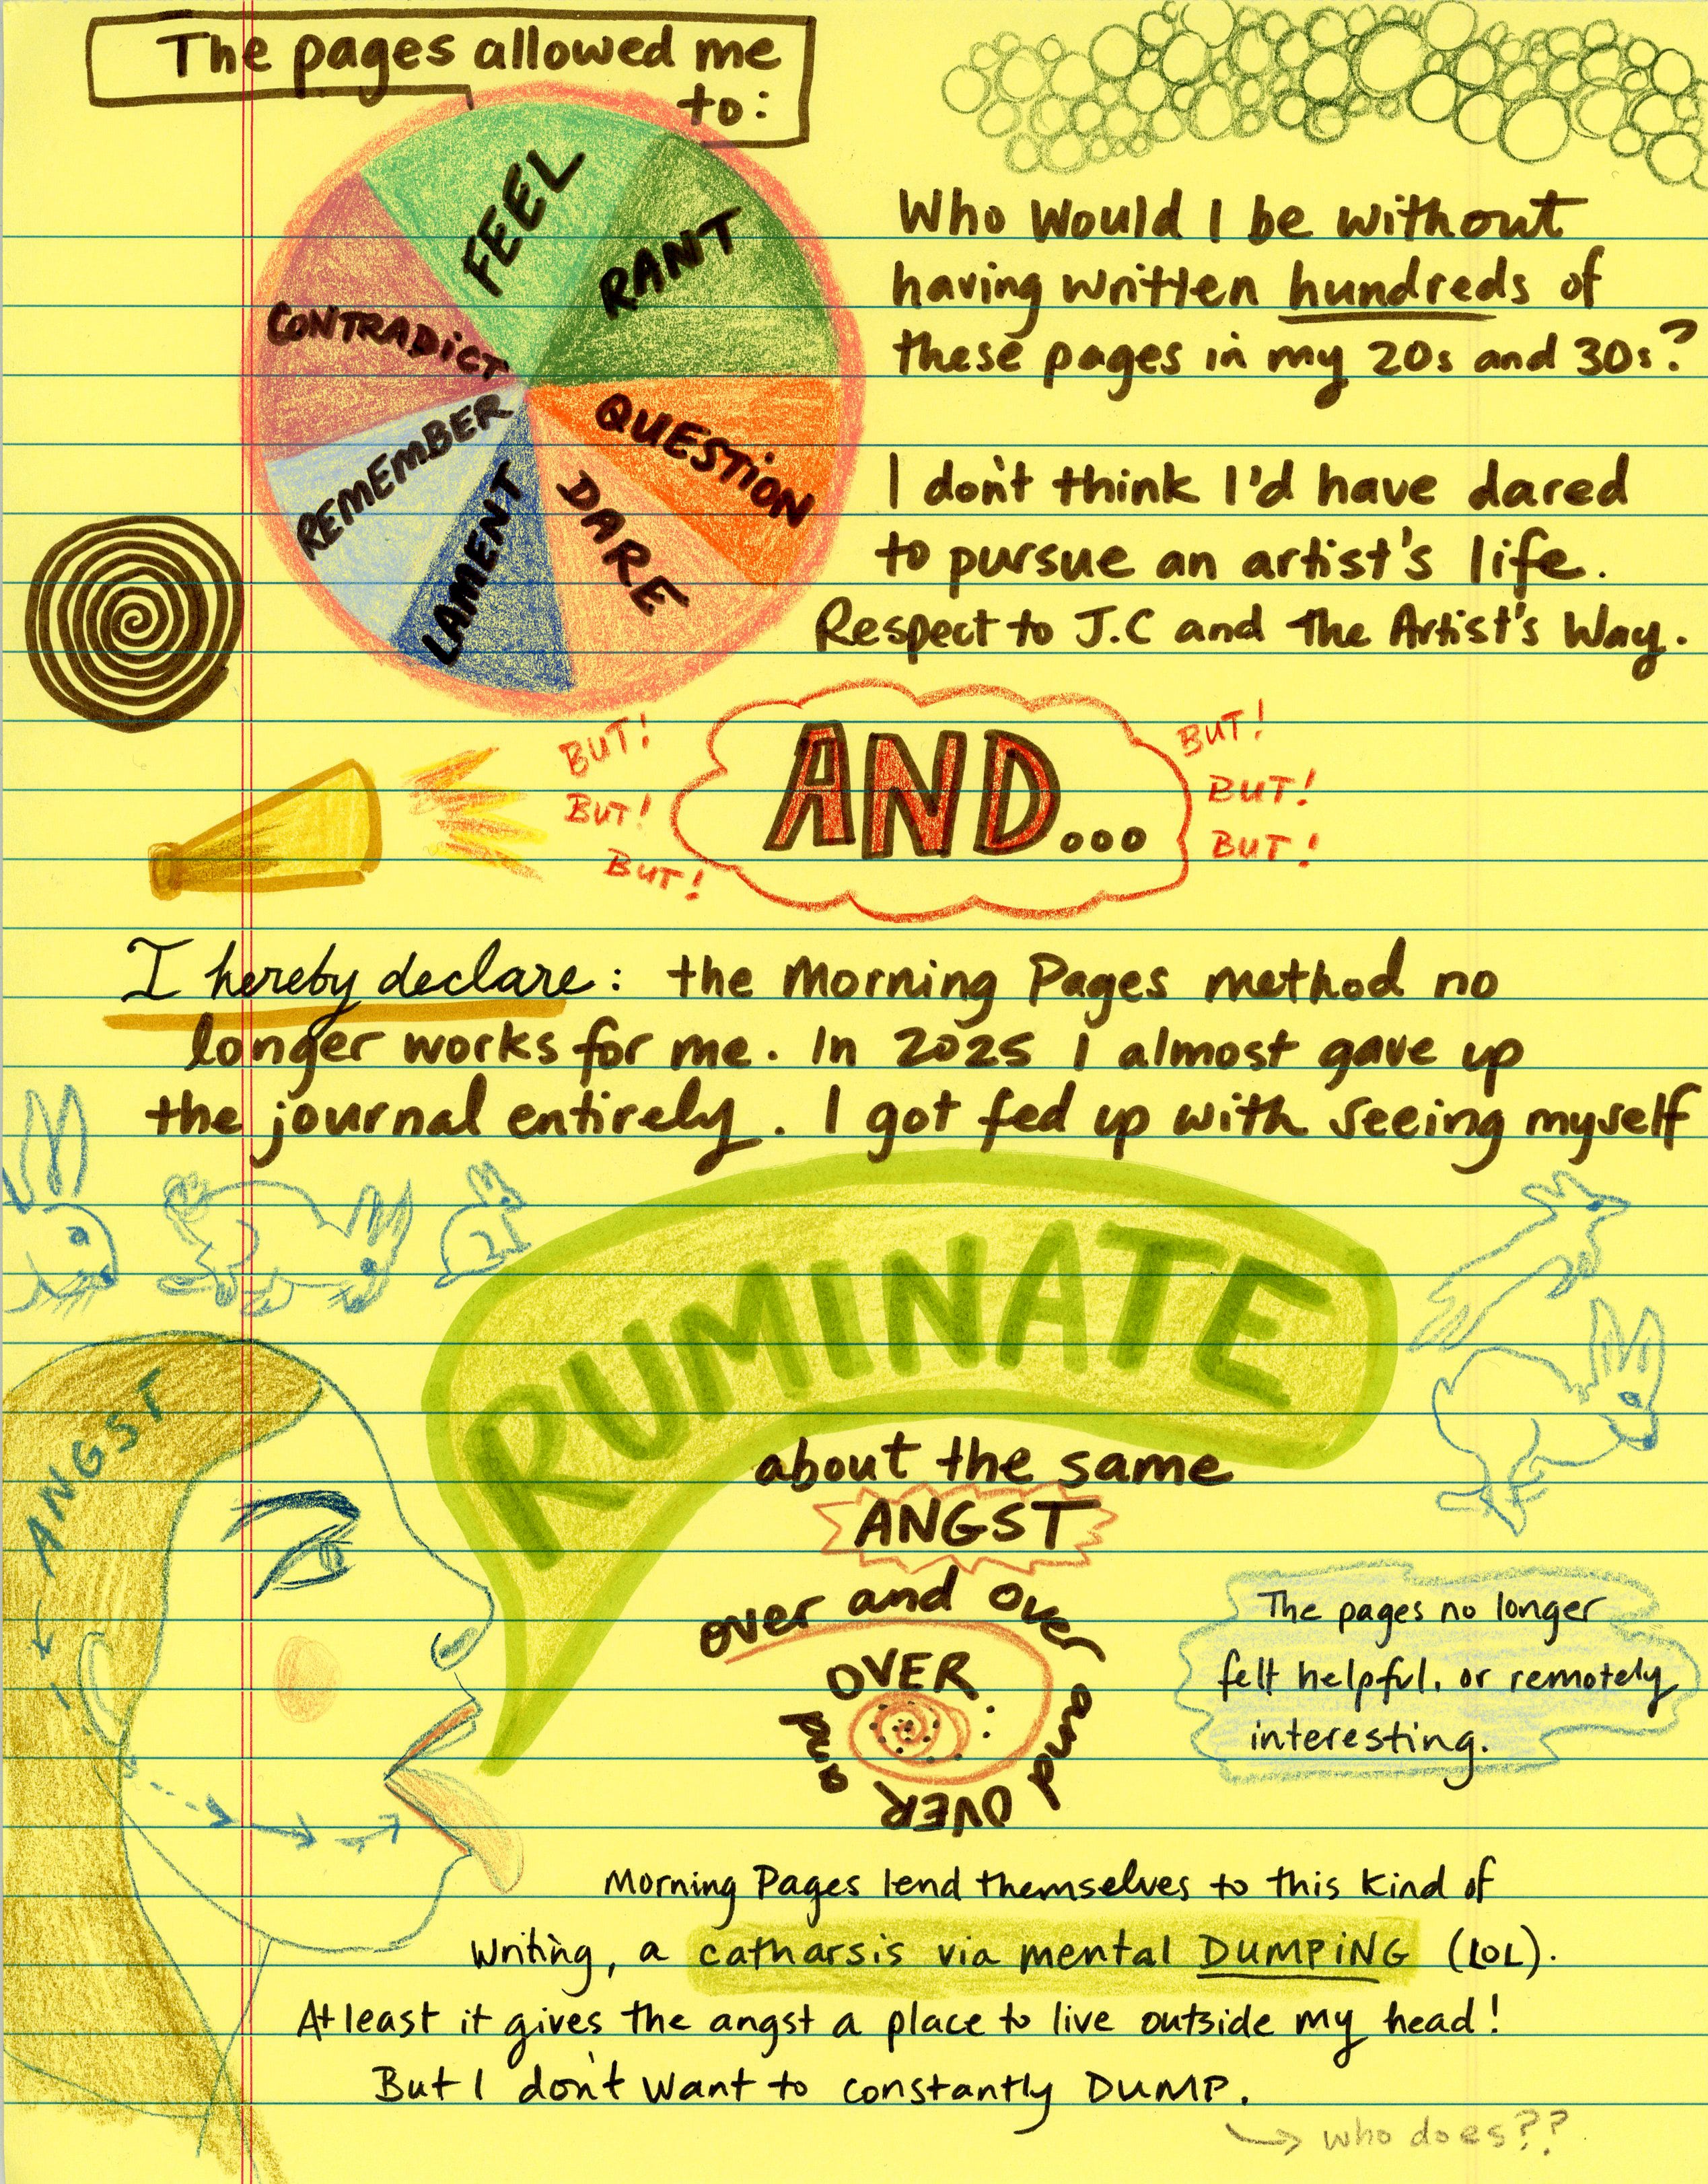 The pages allowed me
to:
FEEL
RANT
QUESTION
DARE
LAMENT
REMEMBER
CONTRADICT
Who would I be without
having written hundreds of
these pages in my 20s and 30s?
I don't think I'd have dared
to pursue an artist's life.
Respect to J.C and The Artist's Way.
BUT!
BUT!
BUT!
AND...
BUT!
BUT!
BUT!
I hereby declare: the Morning Pages method no
longer works for me. In 2025 I almost gave up
the journal entirely. I got fed up with seeing myself
RUMINATE
ANGST
about the same
ANGST
over and over
and
OVER
and
OVER
The pages no longer
felt helpful, or remotely
interesting.
Morning Pages lend themselves to this kind of
writing, a catharsis via mental DUMPING (LOL).
At least it gives the angst a place to live outside my head!
But I don't want to constantly DUMP.
who does??